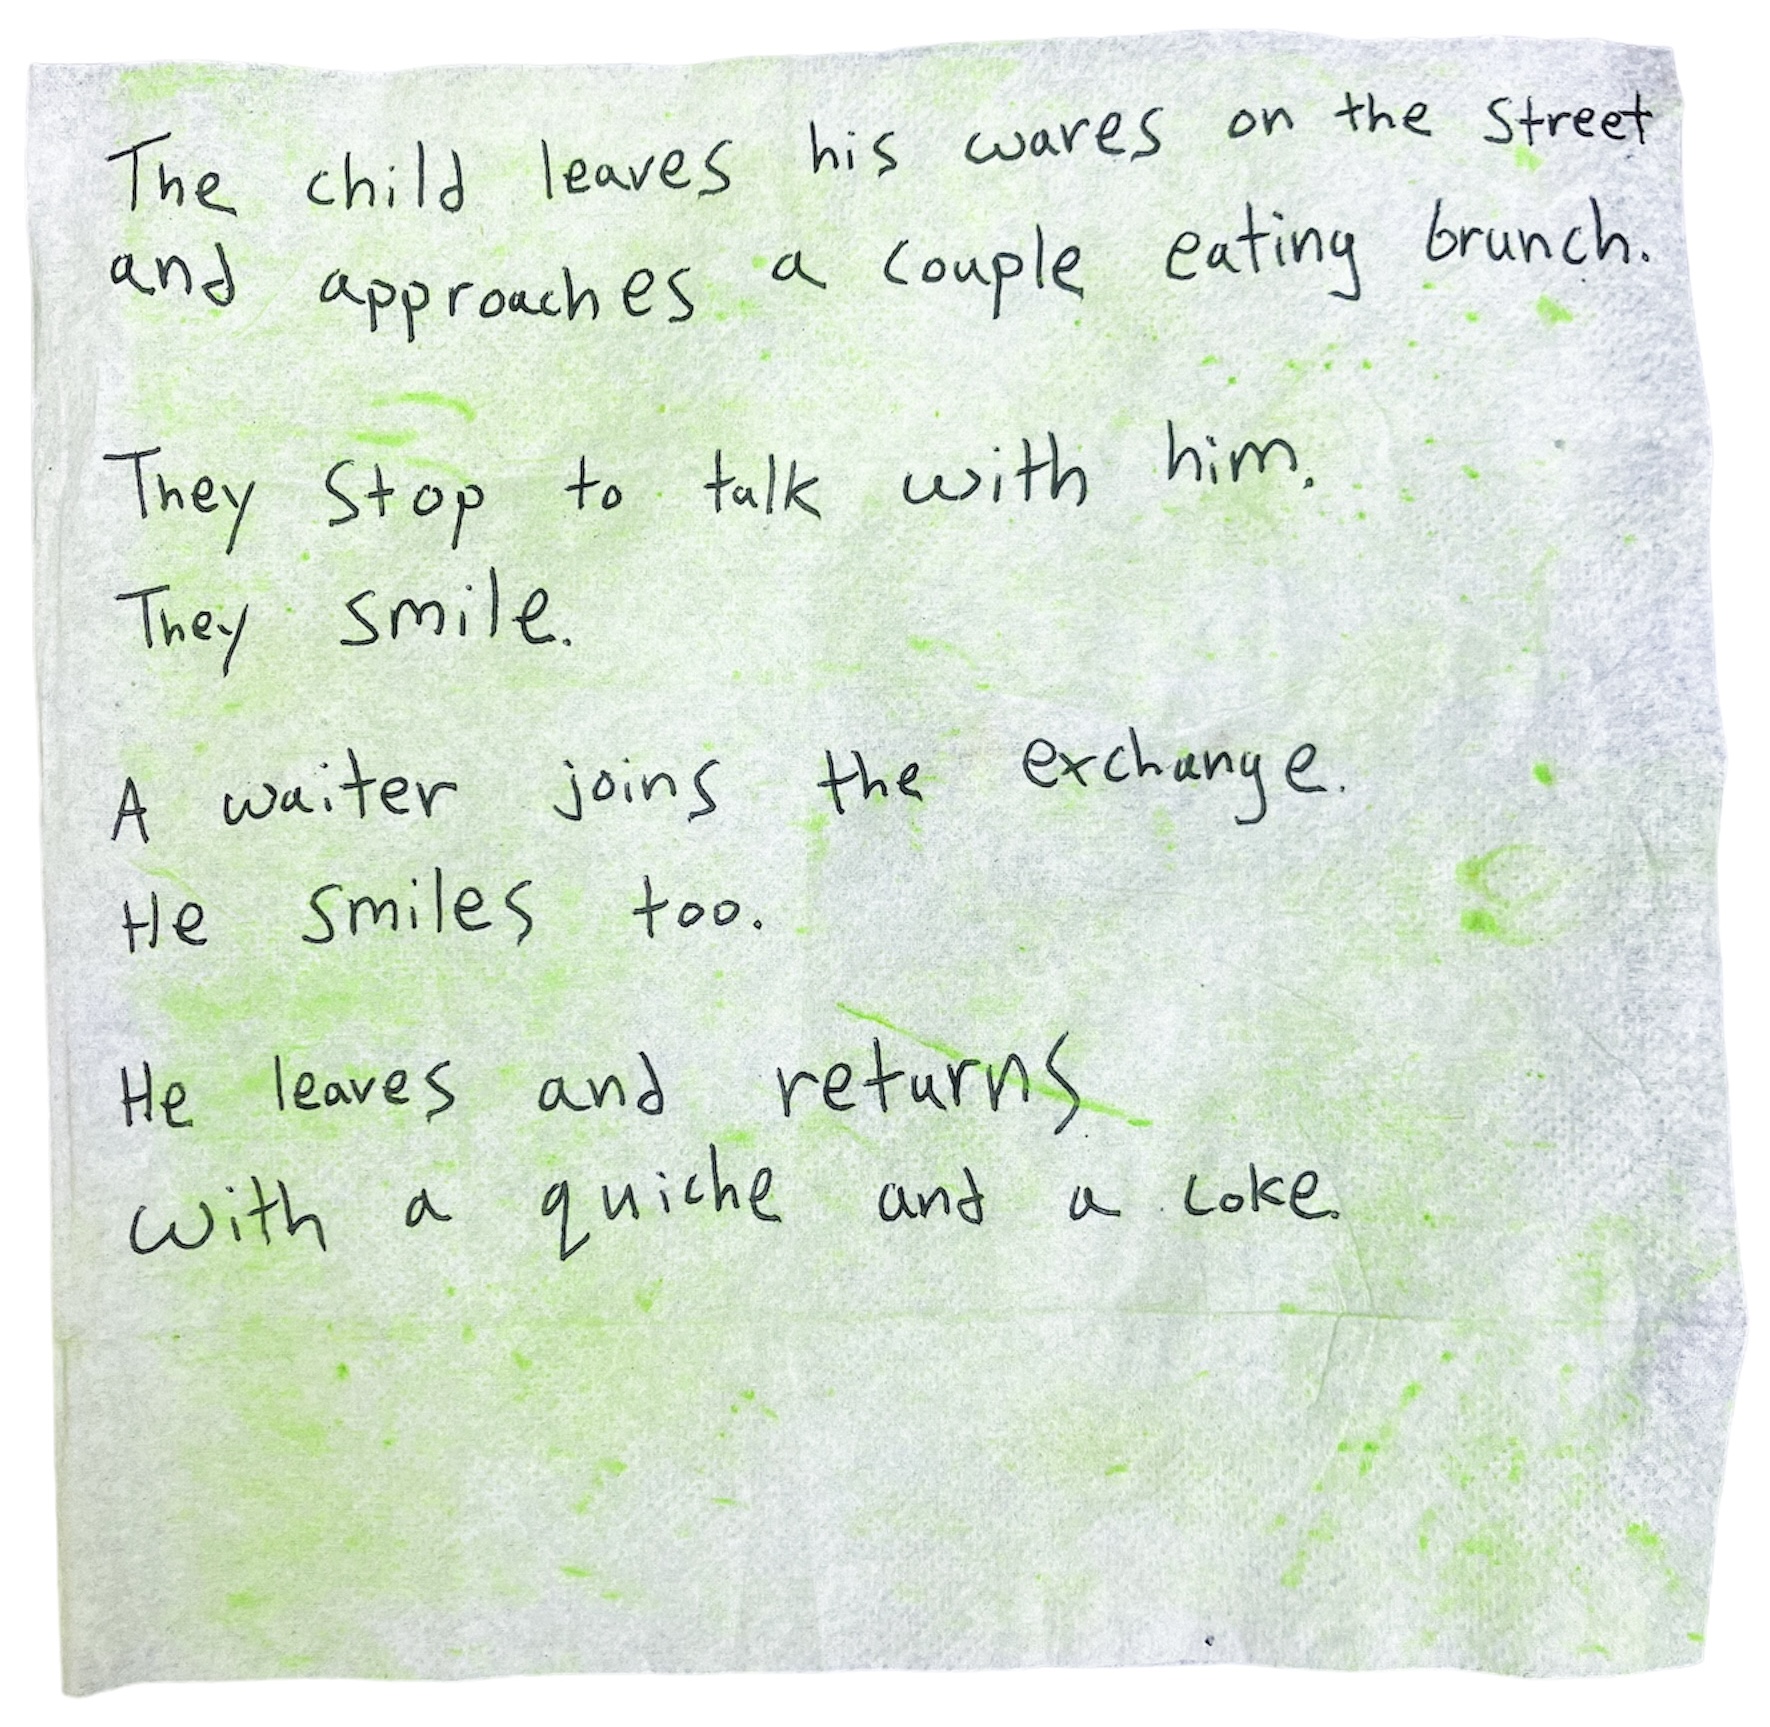 The child leaves his wares on the street
and approaches a couple eating brunch.
They stop to talk with him.
They smile.
A waiter joins the exchange.
He smiles too.
He leaves and returns
with a quiche and a coke.